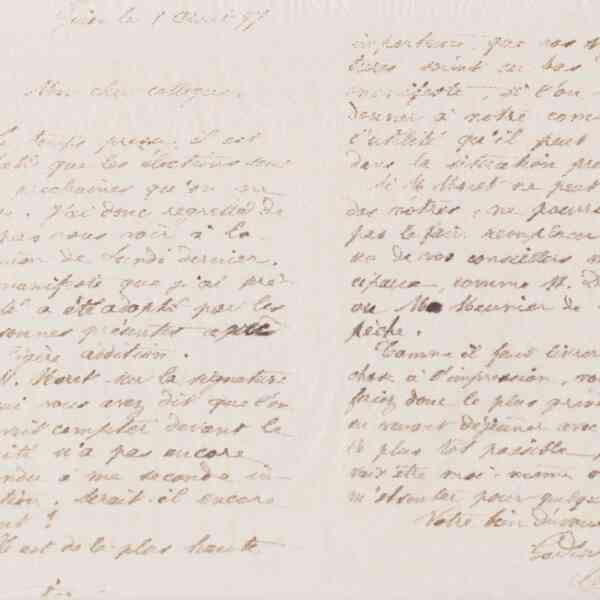 le 1 Avril 77
Mon cher collègue,
le temps presse, il est
que les élections sont
prochaines qu'on ne
. J'ai donc regretté de
pas vous voir à la
nion de Lundi dernier.
manifeste que j'ai pré-
té a été adopté par les
sonnes présentes après
légère addition.
M. Moret sur la signature
ui vous avez dit que l'on
vait compter devant le
ité n'a pas encore
ndu à ma seconde in-
tion. Serait-il encore
ent ?
Il est de la plus haute
importance que vos
tures soient au bas
manifeste, si l'on
donner à notre com
l'utilité qu'il peut
dans la situation pré
Si M. Moret ne peut
des nôtres, ne pourr
pas le faire remplacer
un de vos conseillers
cipaux, comme M. D
ou M. Meunier de
pêche.
Comme il faut livrer
chose à l'impression, vous
feriez donc le plus grand
en venant déjeuner avec
le plus tôt possible,
vais être moi-même
m'absenter pour quelque
Votre bien dévoué